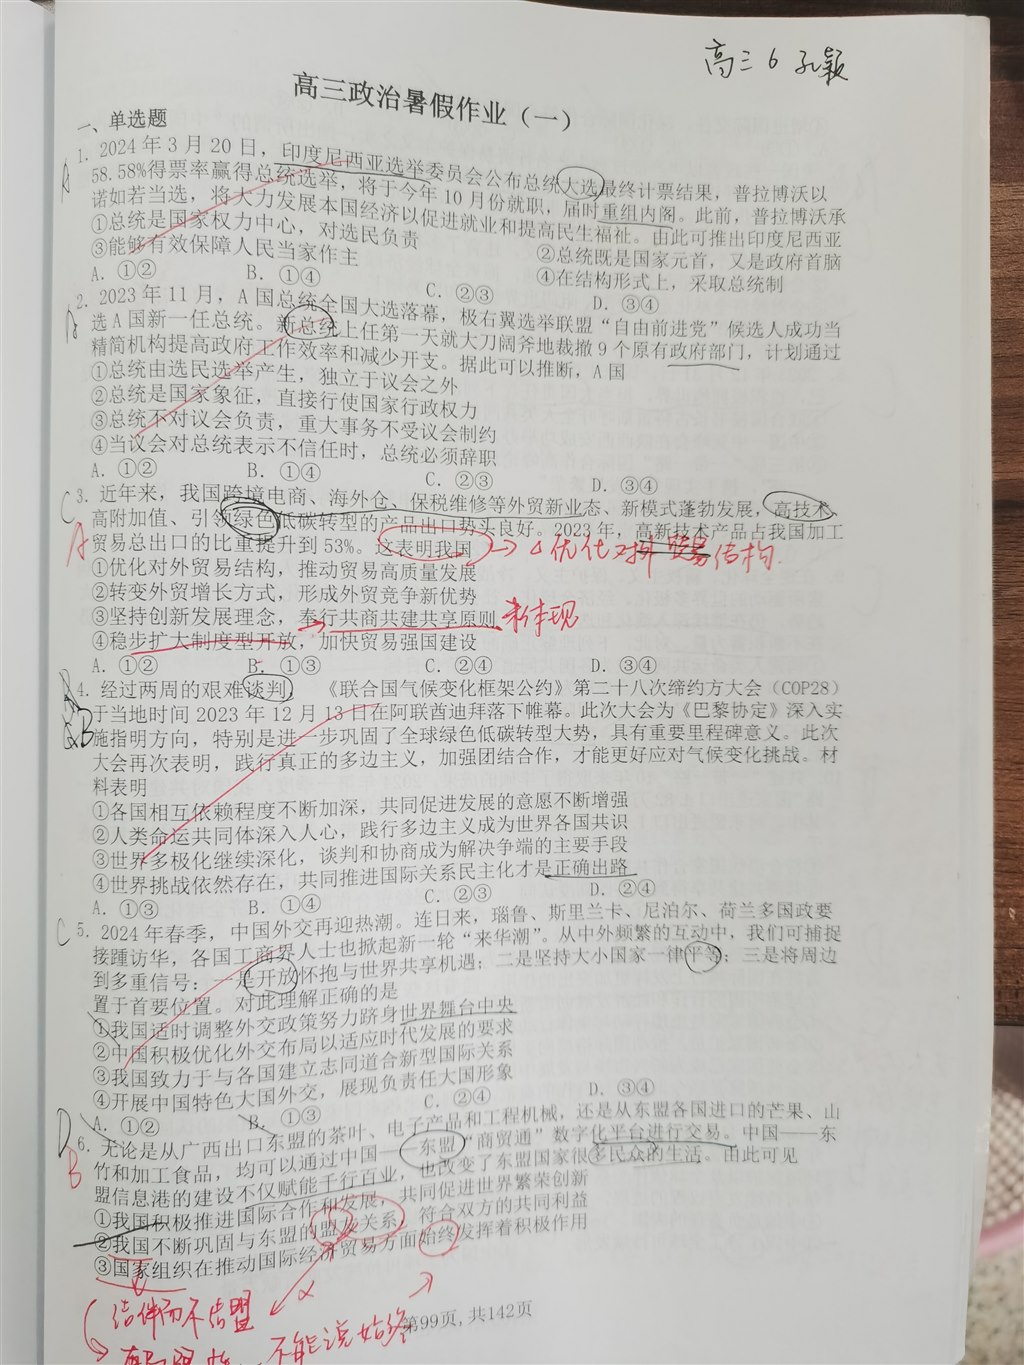 高三6 孔颖
高三政治暑假作业（一）
一、单选题
1. 2024年3月20日，印度尼西亚选举委员会公布总统大选最终计票结果，普拉博沃以
58.58%得票率赢得总统选举，将于今年10月份就职，届时重组内阁。此前，普拉博沃承
诺如若当选，将大力发展本国经济以促进就业和提高民生福祉。由此可推出印度尼西亚
①总统是国家权力中心，对选民负责
②总统既是国家元首，又是政府首脑
③能够有效保障人民当家作主
④在结构形式上，采取总统制
A. ①② B. ①④ C. ②③ D. ③④
2. 2023年11月，A国总统全国大选落幕，极右翼选举联盟“自由前进党”候选人成功当
选A国新一任总统。新总统上任第一天就大刀阔斧地裁撤9个原有政府部门，计划通过
精简机构提高政府工作效率和减少开支。据此可以推断，A国
①总统由选民选举产生，独立于议会之外
②总统是国家象征，直接行使国家行政权力
③总统不对议会负责，重大事务不受议会制约
④当议会对总统表示不信任时，总统必须辞职
A. ①② B. ①④ C. ②③ D. ③④
C
3. 近年来，我国跨境电商、海外仓、保税维修等外贸新业态、新模式蓬勃发展，高技术、
高附加值、引领绿色低碳转型的产品出口势头良好。2023年，高新技术产品占我国加工
A
贸易总出口的比重提升到53%。这表明我国
优化对外贸易结构.
①优化对外贸易结构，推动贸易高质量发展
②转变外贸增长方式，形成外贸竞争新优势
③坚持创新发展理念，奉行共商共建共享原则
未体现
④稳步扩大制度型开放，加快贸易强国建设
A. ①② B. ①③ C. ②③ D. ③④
4. 经过两周的艰难谈判，《联合国气候变化框架公约》第二十八次缔约方大会（COP28）
B
于当地时间2023年12月13日在阿联酋迪拜落下帷幕。此次大会为《巴黎协定》深入实
施指明方向，特别是进一步巩固了全球绿色低碳转型大势，具有重要里程碑意义。此次
大会再次表明，践行真正的多边主义，加强团结合作，才能更好应对气候变化挑战。材
料表明
①各国相互依赖程度不断加深，共同促进发展的意愿不断增强
②人类命运共同体深入人心，践行多边主义成为世界各国共识
③世界多极化继续深化，谈判和协商成为解决争端的主要手段
④世界挑战依然存在，共同推进国际关系民主化才是正确出路
A. ①③ B. ①④ C. ②③ D. ②④
C
5. 2024年春季，中国外交再迎热潮。连日来，瑙鲁、斯里兰卡、尼泊尔、荷兰多国政要
接踵访华，各国工商界人士也掀起新一轮“来华潮”。从中外频繁的互动中，我们可捕捉
到多重信号：一是开放怀抱与世界共享机遇；二是坚持大小国家一律平等；三是将周边
置于首要位置。对此理解正确的是
①我国适时调整外交政策努力跻身世界舞台中央
②中国积极优化外交布局以适应时代发展的要求
③我国致力于与各国建立志同道合新型国际关系
④开展中国特色大国外交，展现负责任大国形象
A. ①② B. ①③ C. ②④ D. ③④
D
6. 无论是从广西出口东盟的茶叶、电子产品和工程机械，还是从东盟各国进口的芒果、山
B
竹和加工食品，均可以通过中国——东盟“商贸通”数字化平台进行交易。中国——东
盟信息港的建设不仅赋能千行百业，也改变了东盟国家很多民众的生活。由此可见
①我国积极推进国际合作和发展，共同促进世界繁荣创新
②我国不断巩固与东盟的盟友关系，符合双方的共同利益
③国家组织在推动国际经济贸易方面始终发挥着积极作用
结伴而不结盟
不能说始终
第99页，共142页